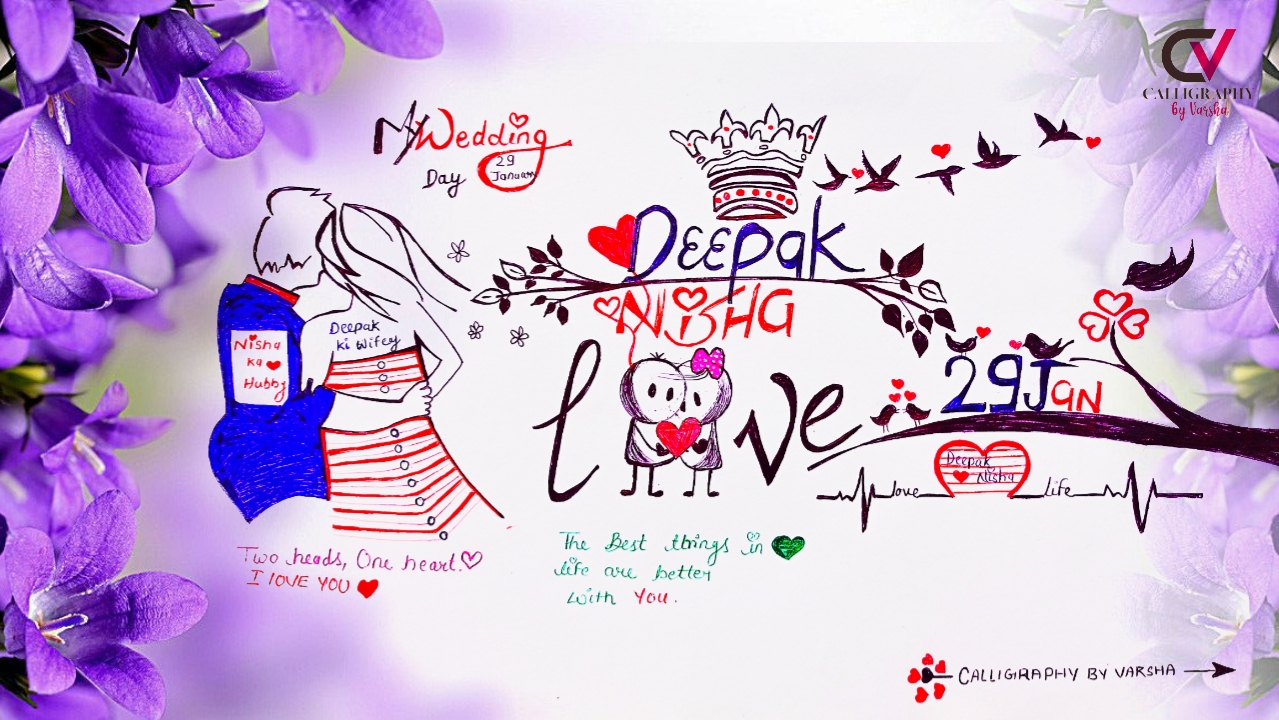 CV
CALLIGRAPHY
By Varsha
My Wedding
Day 29
January
Deepak
NiSHA
love
Nisha
ka
Hubby
Deepak
ki Wifey
29 JAN
Deepak
Nisha
love
life
Two heads, One heart.
I lOVE YOU
The Best things in
life are better
with You.
CALLIGRAPHY BY VARSHA